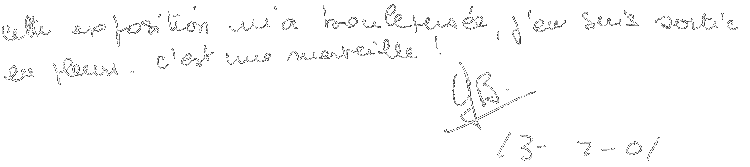 cette exposition m'a bouleversée, j'en suis sortie
en pleurs. c'est une merveille !
YB.
13-7-01